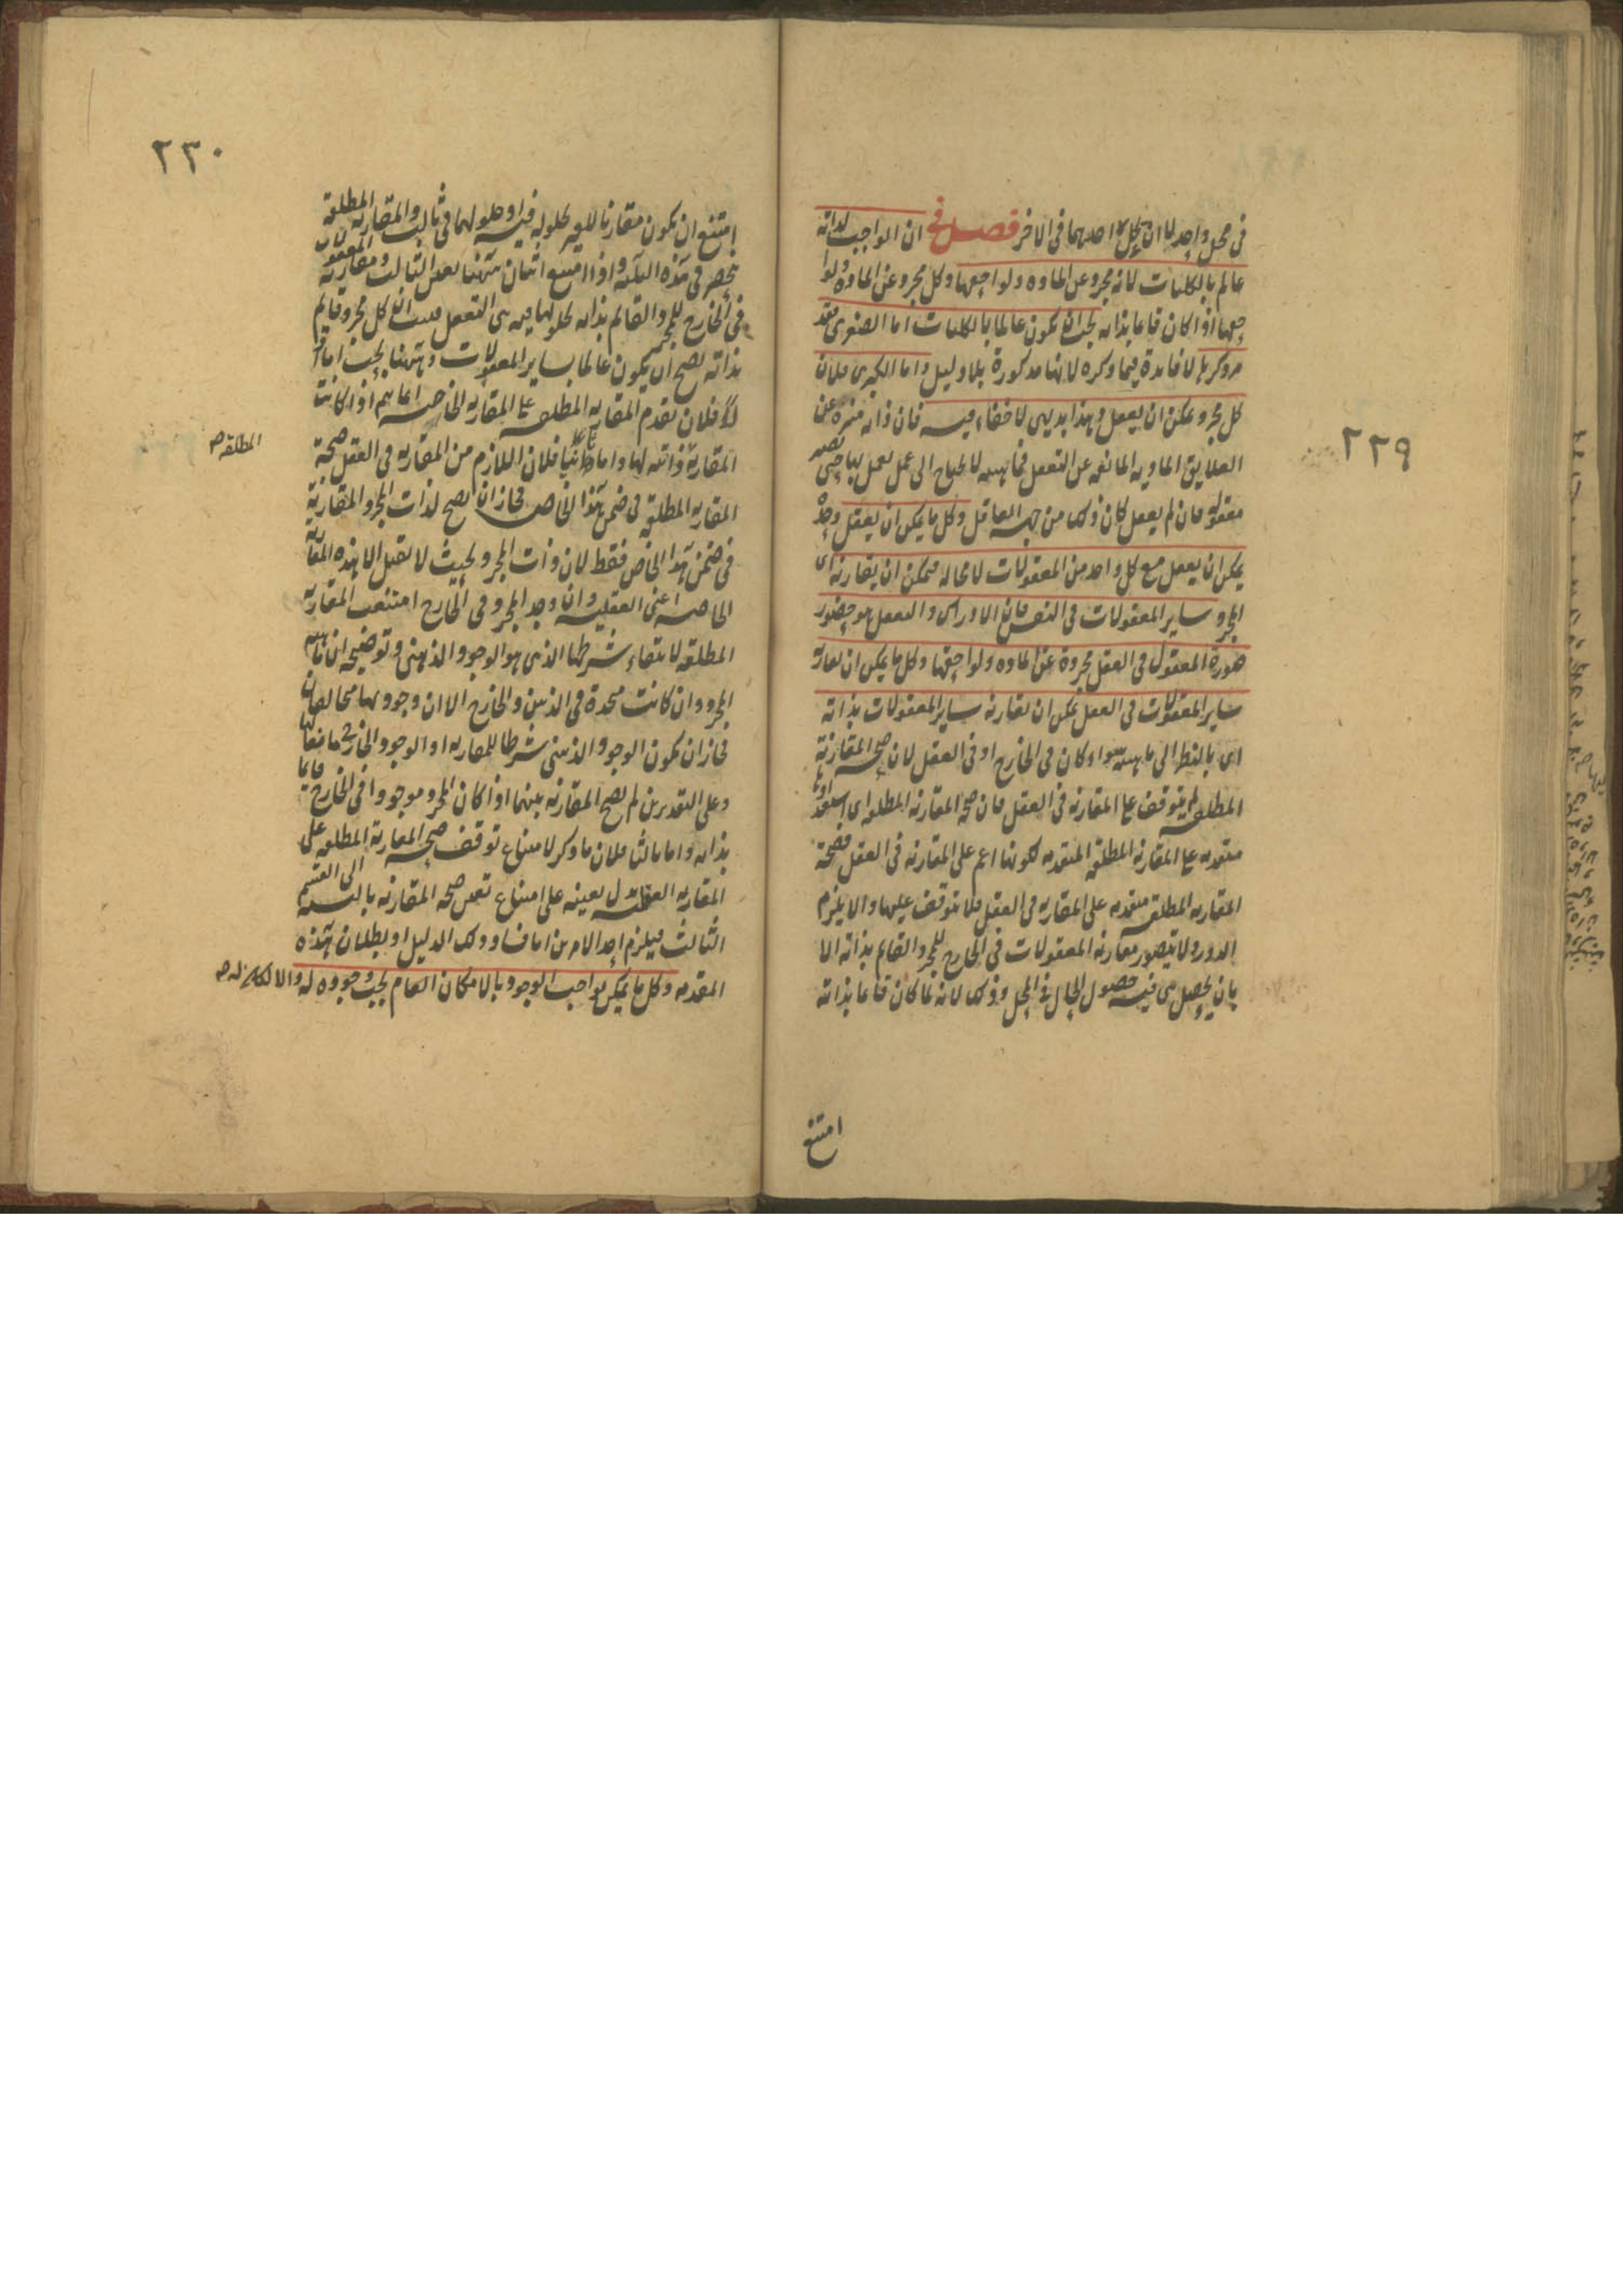 ٢٢٩
في محل واحد لا ان يحل احدهما في الاخر فصل في ان الواجب لذاته
عالم بالكليات لانه مجرد عن الماده ولواحقها وكل مجرد عن الماده ولوا
حقها اذا كان قائما بذاته يجب ان يكون عالما بالكليات اما الصغرى فقد
مر ذكرها لا فايدة فيما ذكره لانها مذكورة بلا دليل واما الكبرى فلان
كل مجرد يمكن ان يعقل وهذا بديهى لا خفاء فيه فان ذاته منزه عن
العلايق الماديه المانعه عن التعقل فماهيته لا يحتاج الى عمل يعمل بها حتى تصير
معقوله فان لم يعقل كان ذلك من جهة العاقل وكل ما يمكن ان يعقل وحده
يمكن ان يعقل مع كل واحد من المعقولات لا محاله فيمكن ان يقارنه اى
المجرد ساير المعقولات في النفس فان الادراك والتعقل هو حضور
صورة المعقول في العقل مجردة عن الماده ولواحقها وكل ما يمكن ان يقارنه
ساير المعقولات في العقل يمكن ان يقارنه ساير المعقولات بذاته
اى بالنظر الى ماهيته سواء كان في الخارج او في العقل لان صحة المقارنة
المطلقه لم يتوقف على المقارنه في العقل فان صحة المقارنه المطلقه اى استعدادها
متقدمه على المقارنه المطلقه المتقدمه لكونها اعم على المقارنه في العقل فصحة
المقارنه المطلقه متقدمه على المقارنه في العقل فلا تتوقف عليها والا يلزم
الدور ولا يتصور مقارنة المعقولات في الخارج للمجرد القائم بذاته الا
بان يحصل هى فيه حصول الحال في المحل وذلك لانه لما كان قائما بذاته
امتنع
٢٣٠
امتنع ان يكون مقارنا للغير بحلوله فيه او حلولهما في ثالث والمقارنه المطلقة
ينحصر في هذه الثلثه واذا امتنع اثنان منها تعين الثالث ومقارنة المعقولات
في الخارج للمجرد القائم بذاته بحلولها فيه هى التعقل فثبت ان كل مجرد قايم
بذاته يصح ان يكون عالما بساير المعقولات وههنا بحث اما
اولا فلان تقدم المقارنه المطلقه على المقارنه الخاصه انما يتم اذا كانت
المقارنة ذاتيه لها واما ثانيا فلان اللازم من المقارنه في العقل صحة
المطلقه صح
المقارنه المطلقة في ضمن هذا الخاص فجاز ان يصح لذات المجرد المقارنة
في ضمن هذا الخاص فقط لان ذات المجرد بحيث لا تقبل الا هذه المقارنه
الخاصه اعنى العقليه وان وجد المجرد في الخارج امتنعت المقارنه
المطلقه لانتفاء شرطها الذى هو الوجود الذهنى وتوضيحه ان ماهيه
المجرد وان كانت متحدة في الذهن والخارج الا ان وجوديها متخالفان
فجاز ان يكون الوجود الذهنى شرطا للمقارنه او الوجود الخارجى مانعا لها
وعلى التقديرين لم يصح المقارنه بينهما اذا كان المجرد موجودا في الخارج قايما
بذاته واما ثالثا فلان ما ذكر لامتناع توقف صحة المقارنة المطلقه على
المقارنه العقليه يدل بعينه على امتناع توقف صحة المقارنه بالنسبه الى القسم
الثالث فيلزم احد الامرين اما فساد ذلك الدليل او بطلان هذه
المقدمه وكل ما يمكن لواجب الوجود بالامكان العام يجب وجوده له والا لكان له صح